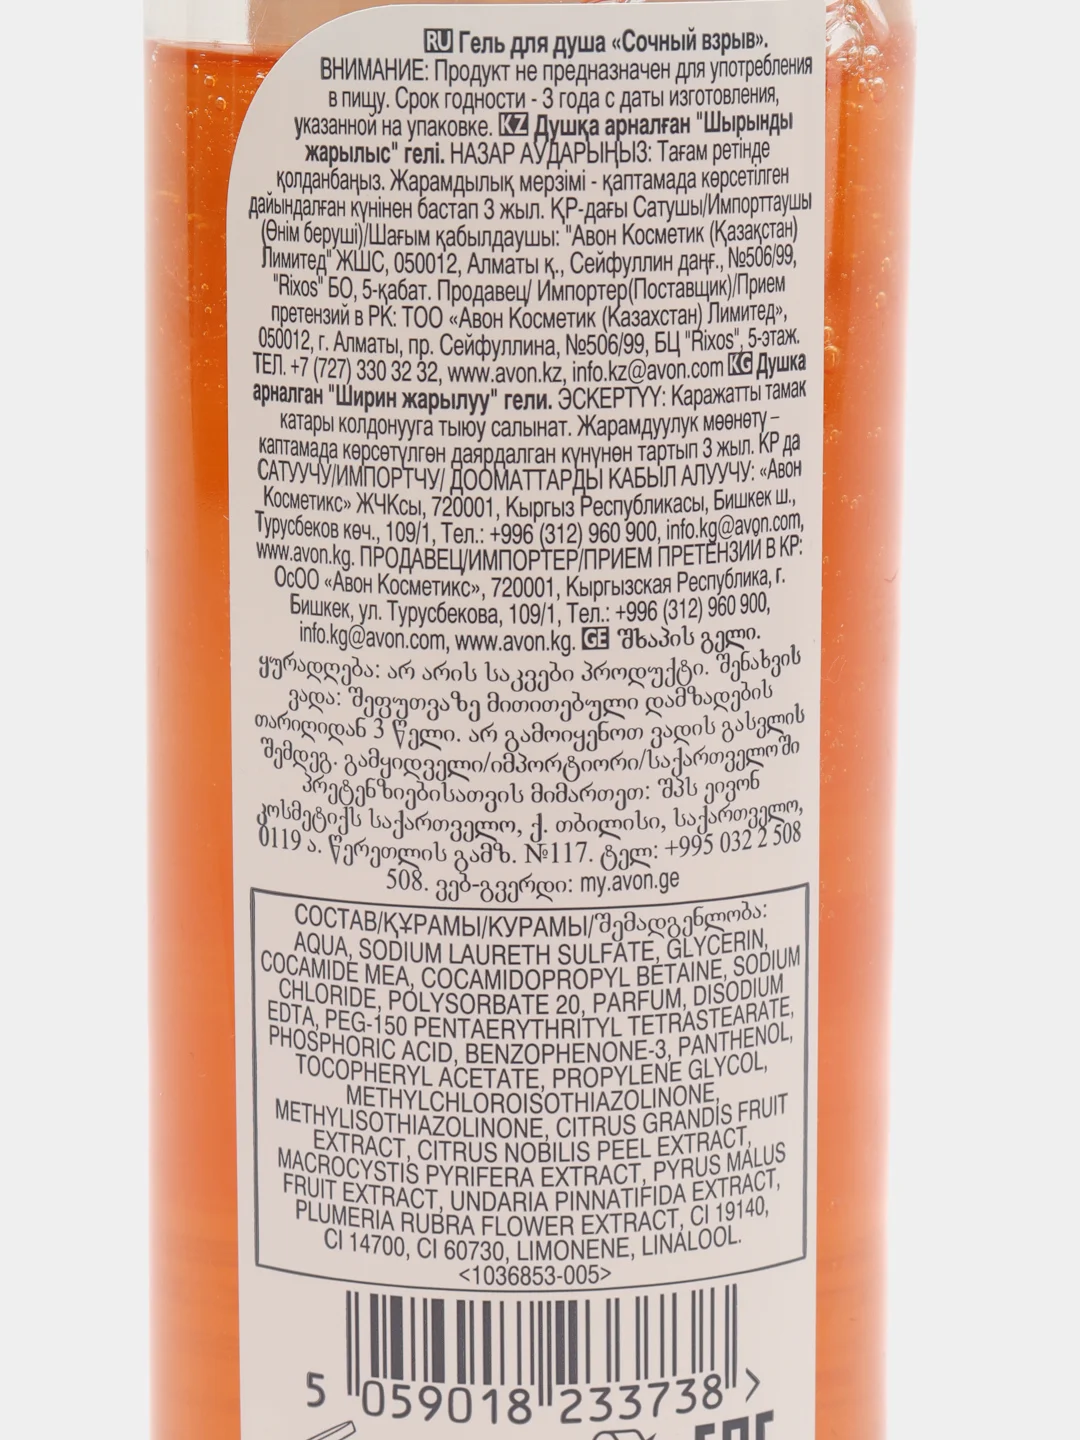 RU Гель для душа «Сочный взрыв».
ВНИМАНИЕ: Продукт не предназначен для употребления
в пищу. Срок годности - 3 года с даты изготовления,
указанной на упаковке. KZ Душқа арналған "Шырынды
жарылыс" гелі. НАЗАР АУДАРЫҢЫЗ: Тағам ретінде
қолданбаңыз. Жарамдылық мерзімі - қаптамада көрсетілген
дайындалған күнінен бастап 3 жыл. ҚР-дағы Сатушы/Импорттаушы
(Өнім беруші)/Шағым қабылдаушы: "Авон Косметик (Қазақстан)
Лимитед" ЖШС, 050012, Алматы қ., Сейфуллин даңғ., №506/99,
"Rixos" БО, 5-қабат. Продавец/ Импортер(Поставщик)/Прием
претензий в РК: ТОО «Авон Косметик (Казахстан) Лимитед»,
050012, г. Алматы, пр. Сейфуллина, №506/99, БЦ "Rixos", 5-этаж.
ТЕЛ. +7 (727) 330 32 32, www.avon.kz, info.kz@avon.com KG Душка
арналган "Ширин жарылуу" гели. ЭСКЕРТҮҮ: Каражатты тамак
катары колдонууга тыюу салынат. Жарамдуулук мөөнөтү –
каптамада көрсөтүлгөн даярдалган күнүнөн тартып 3 жыл. КР да
САТУУЧУ/ИМПОРТЧУ/ ДООМАТТАРДЫ КАБЫЛ АЛУУЧУ: «Авон
Косметикс» ЖЧКсы, 720001, Кыргыз Республикасы, Бишкек ш.,
Турусбеков көч., 109/1, Тел.: +996 (312) 960 900, info.kg@avon.com,
www.avon.kg. ПРОДАВЕЦ/ИМПОРТЕР/ПРИЕМ ПРЕТЕНЗИЙ В КР:
ОсОО «Авон Косметикс», 720001, Кыргызская Республика, г.
Бишкек, ул. Турусбекова, 109/1, Тел.: +996 (312) 960 900,
info.kg@avon.com, www.avon.kg. GE შხაპის გელი.
ყურადღება: არ არის საკვები პროდუქტი. შენახვის
ვადა: შეფუთვაზე მითითებული დამზადების
თარიღიდან 3 წელი. არ გამოიყენოთ ვადის გასვლის
შემდეგ. გამყიდველი/იმპორტიორი/საქართველოში
პრეტენზიებისათვის მიმართეთ: შპს ეივონ
კოსმეტიქს საქართველო, ქ. თბილისი, საქართველო,
0119 ა. წერეთლის გამზ. №117. ტელ: +995 032 2 508
508. ვებ-გვერდი: my.avon.ge
СОСТАВ/ҚҰРАМЫ/КУРАМЫ/შემადგენლობა:
AQUA, SODIUM LAURETH SULFATE, GLYCERIN,
COCAMIDE MEA, COCAMIDOPROPYL BETAINE, SODIUM
CHLORIDE, POLYSORBATE 20, PARFUM, DISODIUM
EDTA, PEG-150 PENTAERYTHRITYL TETRASTEARATE,
PHOSPHORIC ACID, BENZOPHENONE-3, PANTHENOL,
TOCOPHERYL ACETATE, PROPYLENE GLYCOL,
METHYLCHLOROISOTHIAZOLINONE,
METHYLISOTHIAZOLINONE, CITRUS GRANDIS FRUIT
EXTRACT, CITRUS NOBILIS PEEL EXTRACT,
MACROCYSTIS PYRIFERA EXTRACT, PYRUS MALUS
FRUIT EXTRACT, UNDARIA PINNATIFIDA EXTRACT,
PLUMERIA RUBRA FLOWER EXTRACT, CI 19140,
CI 14700, CI 60730, LIMONENE, LINALOOL.
<1036853-005>
5 059018 233738 >